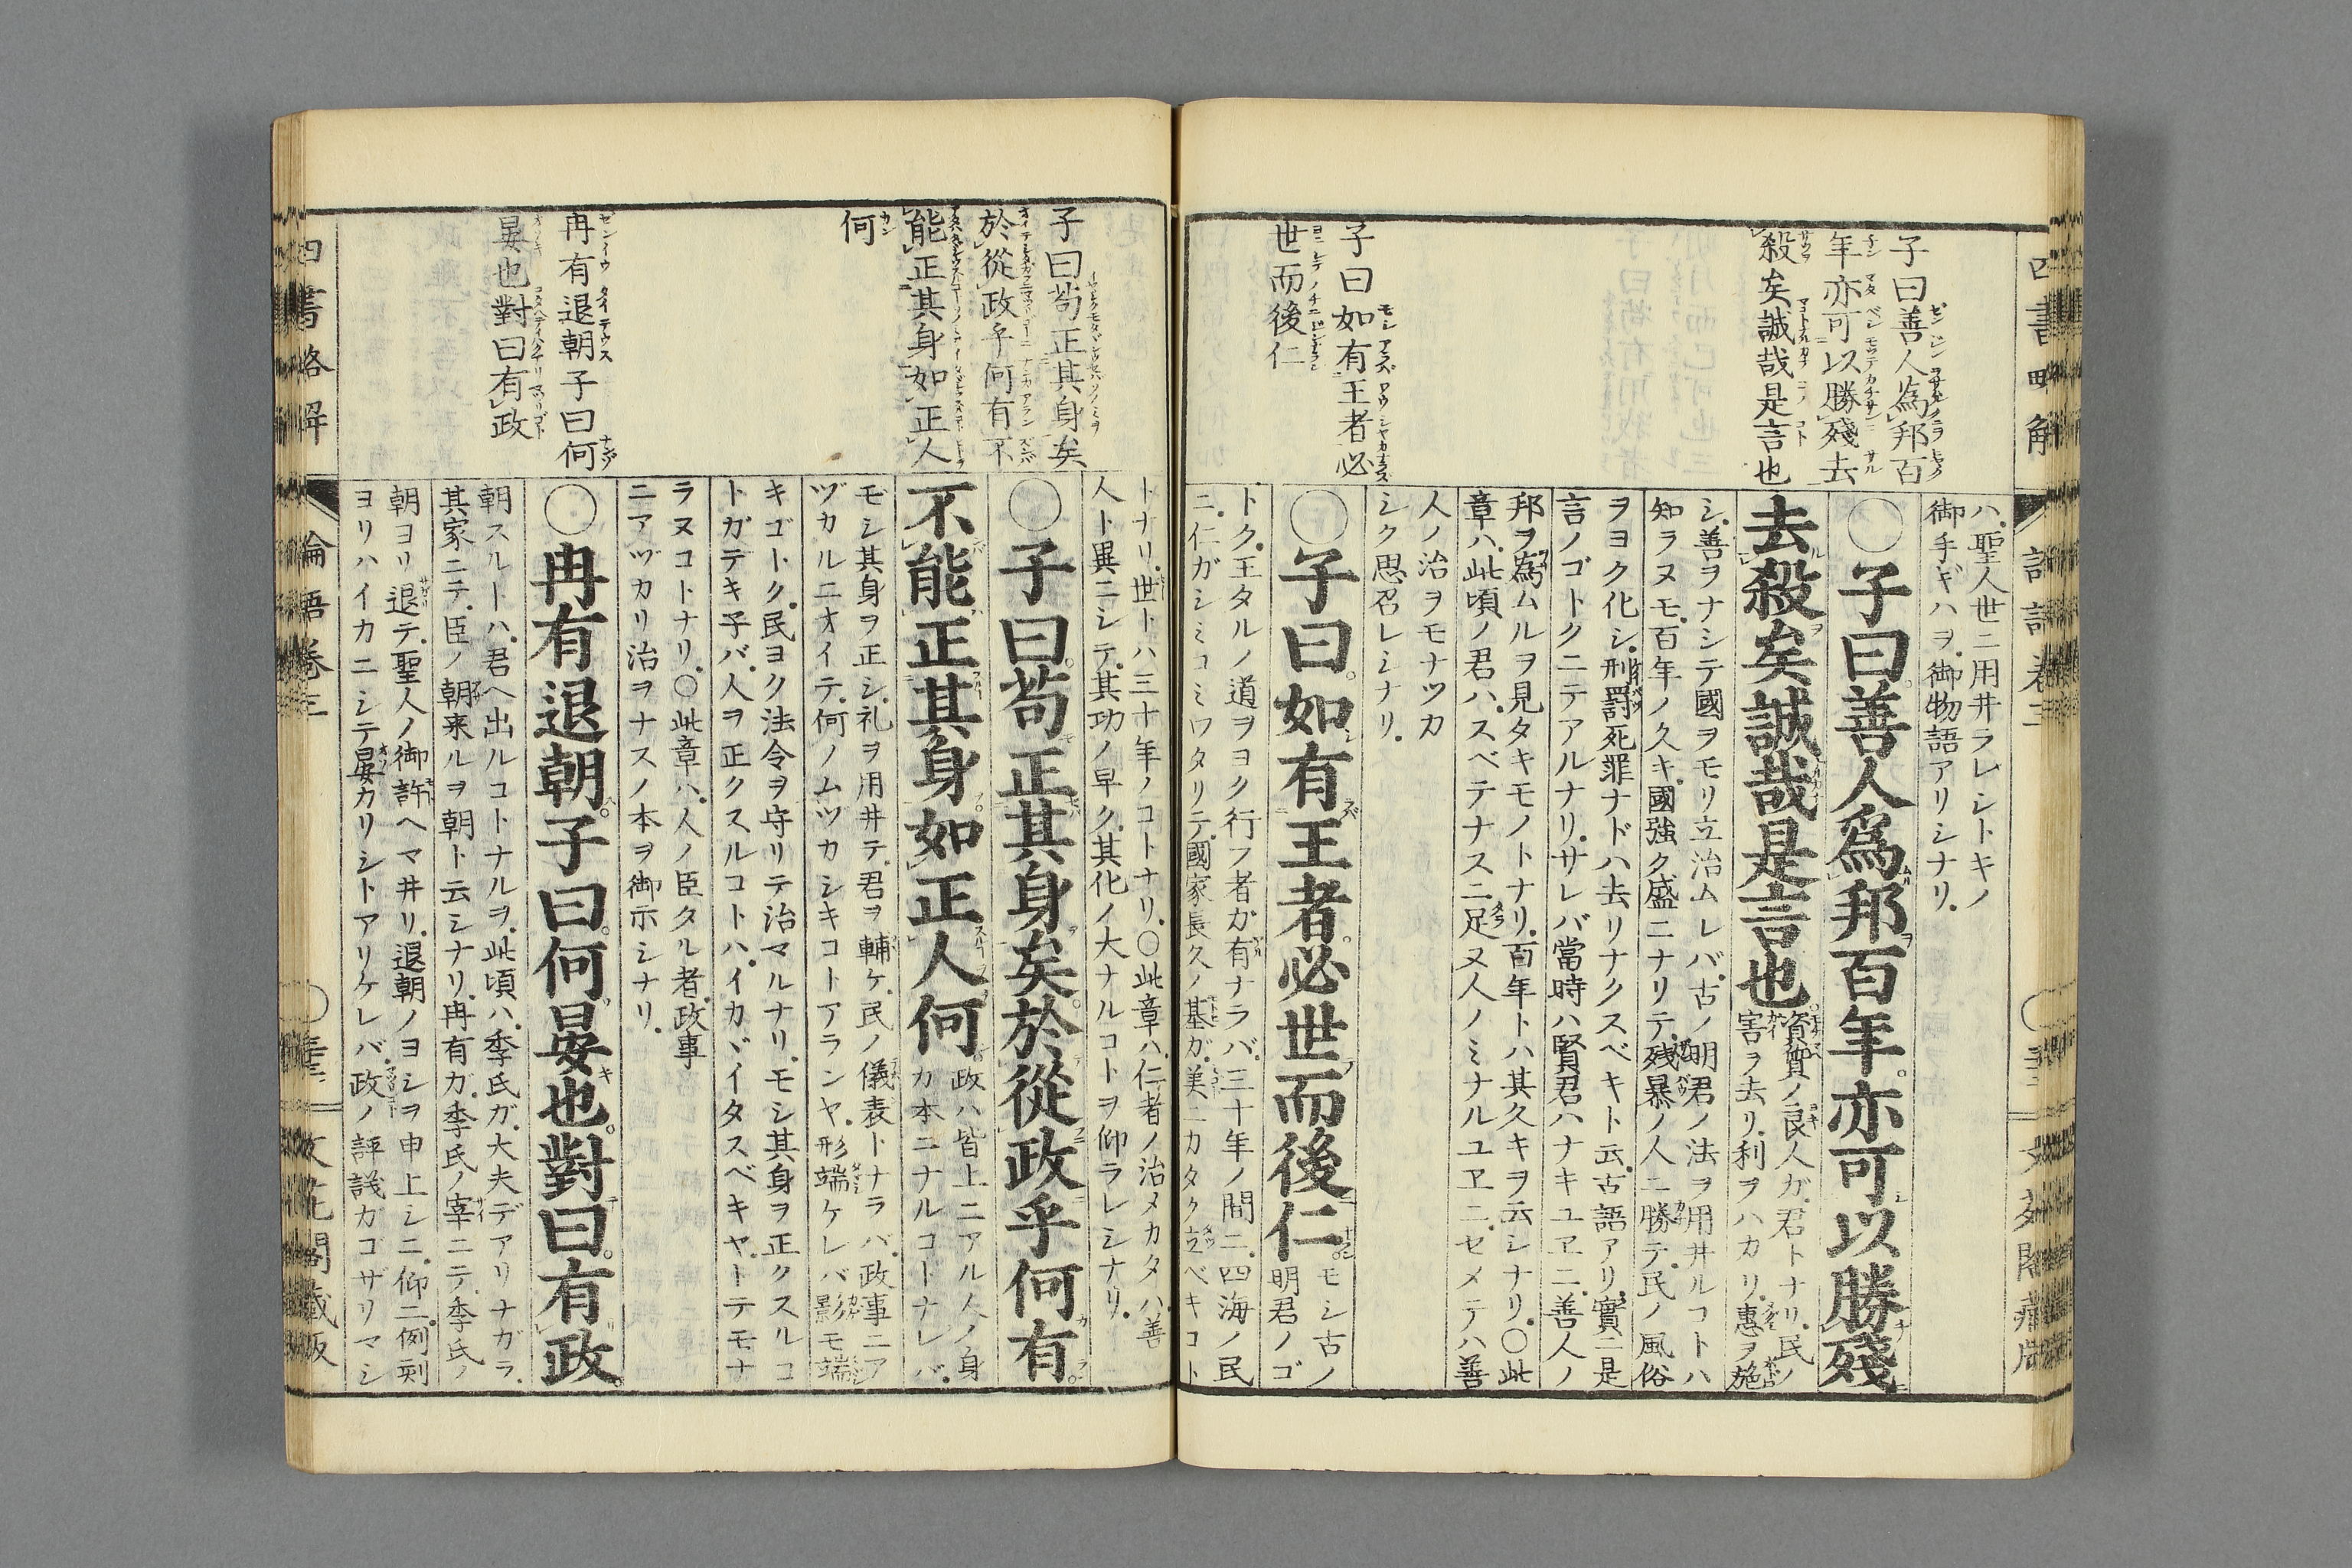 四書略解
論語卷三
子曰善人為邦百
年亦可以勝殘去
殺矣誠哉是言也
子曰如有王者必
世而後仁
ハ聖人世ニ用井ラレシトキノ
御手ギハヲ御物語アリシナリ
〇子曰善人爲邦百年亦可以勝殘
去殺矣誠哉是言也
資質ノ良人ガ君トナリ民ノ
害ヲ去リ利ヲハカリ惠ヲ施
シ善ヲナシテ國ヲモリ立治ムレバ古ノ明君ノ法ヲ用井ルコトハ
知ラヌモ百年ノ久キ國強ク盛ニナリテ残暴ノ人ニ勝テ民ノ風俗
ヲヨク化シ刑罰死罪ナドハ去リナクスベキト云古語アリ實ニ是
言ノゴトクニテアルナリサレバ當時ハ賢君ハナキユヱニ善人ノ
邦ヲ爲ムルヲ見タキモノトナリ百年トハ其久キヲ云シナリ〇此
章ハ此頃ノ君ハスベテナスニ足ヌ人ノミナルユヱニセメテハ善
人ノ治ヲモナツカ
シク思召レシナリ
〇子曰如有王者必世而後仁
モシ古ノ
明君ノゴ
トク王タルノ道ヲヨク行フ者ガ有ナラバ三十年ノ間ニ四海ノ民
ニ仁ガシミコミワタリテ國家長久ノ基ガ美ニカタク立ベキコト
子曰苟正其身矣
於從政乎何有不
能正其身如正人
何
冉有退朝子曰何
晏也對曰有政
トナリ世トハ三十年ノコトナリ〇此章ハ仁者ノ治メカタハ善
人ト異ニシテ其功ノ早ク其化ノ大ナルコトヲ仰ラレシナリ
〇子曰苟正其身矣於從政乎何有
不能正其身如正人何
政ハ皆上ニアル人ノ身
カ本ニナルコトナレバ
モシ其身ヲ正シ礼ヲ用井テ君ヲ輔ケ民ノ儀表トナラバ政事ニア
ヅカルニオイテ何ノムツカシキコトアランヤ形端ケレバ影モ端
キゴトク民ヨク法令ヲ守リテ治マルナリモシ其身ヲ正クスルコ
トガデキ子バ人ヲ正クスルコトハイカヾイタスベキヤトテモナ
ラヌコトナリ〇此章ハ人ノ臣タル者政事
ニアヅカリ治ヲナスノ本ヲ御示シナリ
〇冉有退朝子曰何晏也對曰有政
朝スルトハ君ヘ出ルコトナルヲ此頃ハ季氏ガ大夫デアリナガラ
其家ニテ臣ノ朝来ルヲ朝ト云シナリ冉有ガ季氏ノ宰ニテ季氏ノ
朝ヨリ退テ聖人ノ御許ヘマ井リ退朝ノヨシヲ申上シニ仰ニ例刻
ヨリハイカニシテ晏カリシトアリケレバ政ノ評議ガゴザリマシ
四書略解
論語卷三